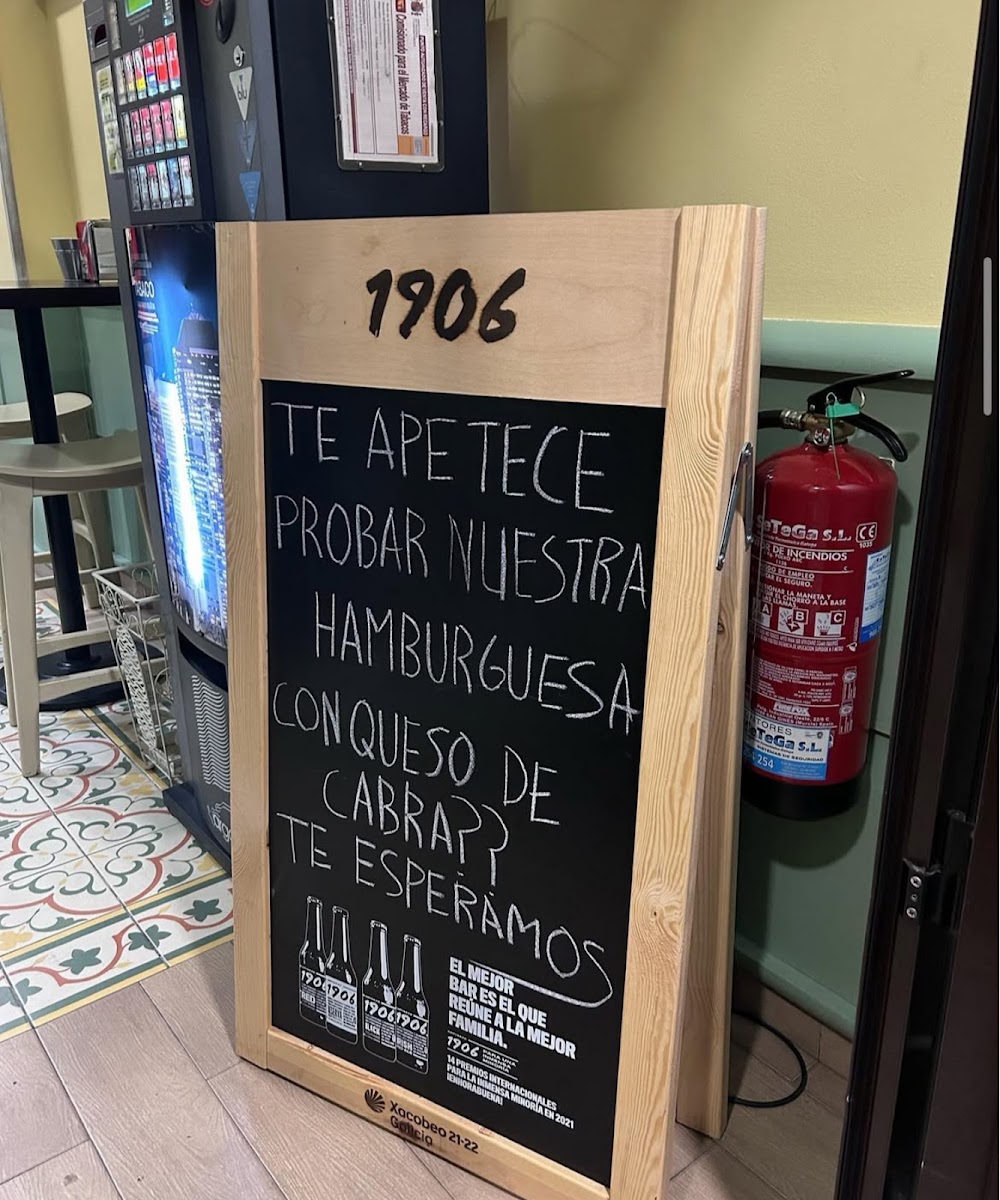 Comisionado para el Mercado de Tabacos
1906
TE APETECE
PROBAR NUESTRA
HAMBURGUESA
CON QUESO DE
CABRA??
TE ESPERAMOS
1906
RED
1906
1906
BLACK
1906
EL MEJOR
BAR ES EL QUE
REÚNE A LA MEJOR
FAMILIA.
1906
PARA UNA
INMENSA
MINORÍA
14 PREMIOS INTERNACIONALES
PARA LA INMENSA MINORÍA EN 2021
¡ENHORABUENA!
Xacobeo 21·22
Galicia
SeTeGa S.L.
CE
1035
DE INCENDIOS
DE EMPLEO
EL SEGURO.
LA MANETA Y
EL CHORRO A LA BASE
LLAMAS.
A B C
FIREFOX
SeTeGa S.L.
SISTEMAS DE SEGURIDAD
254